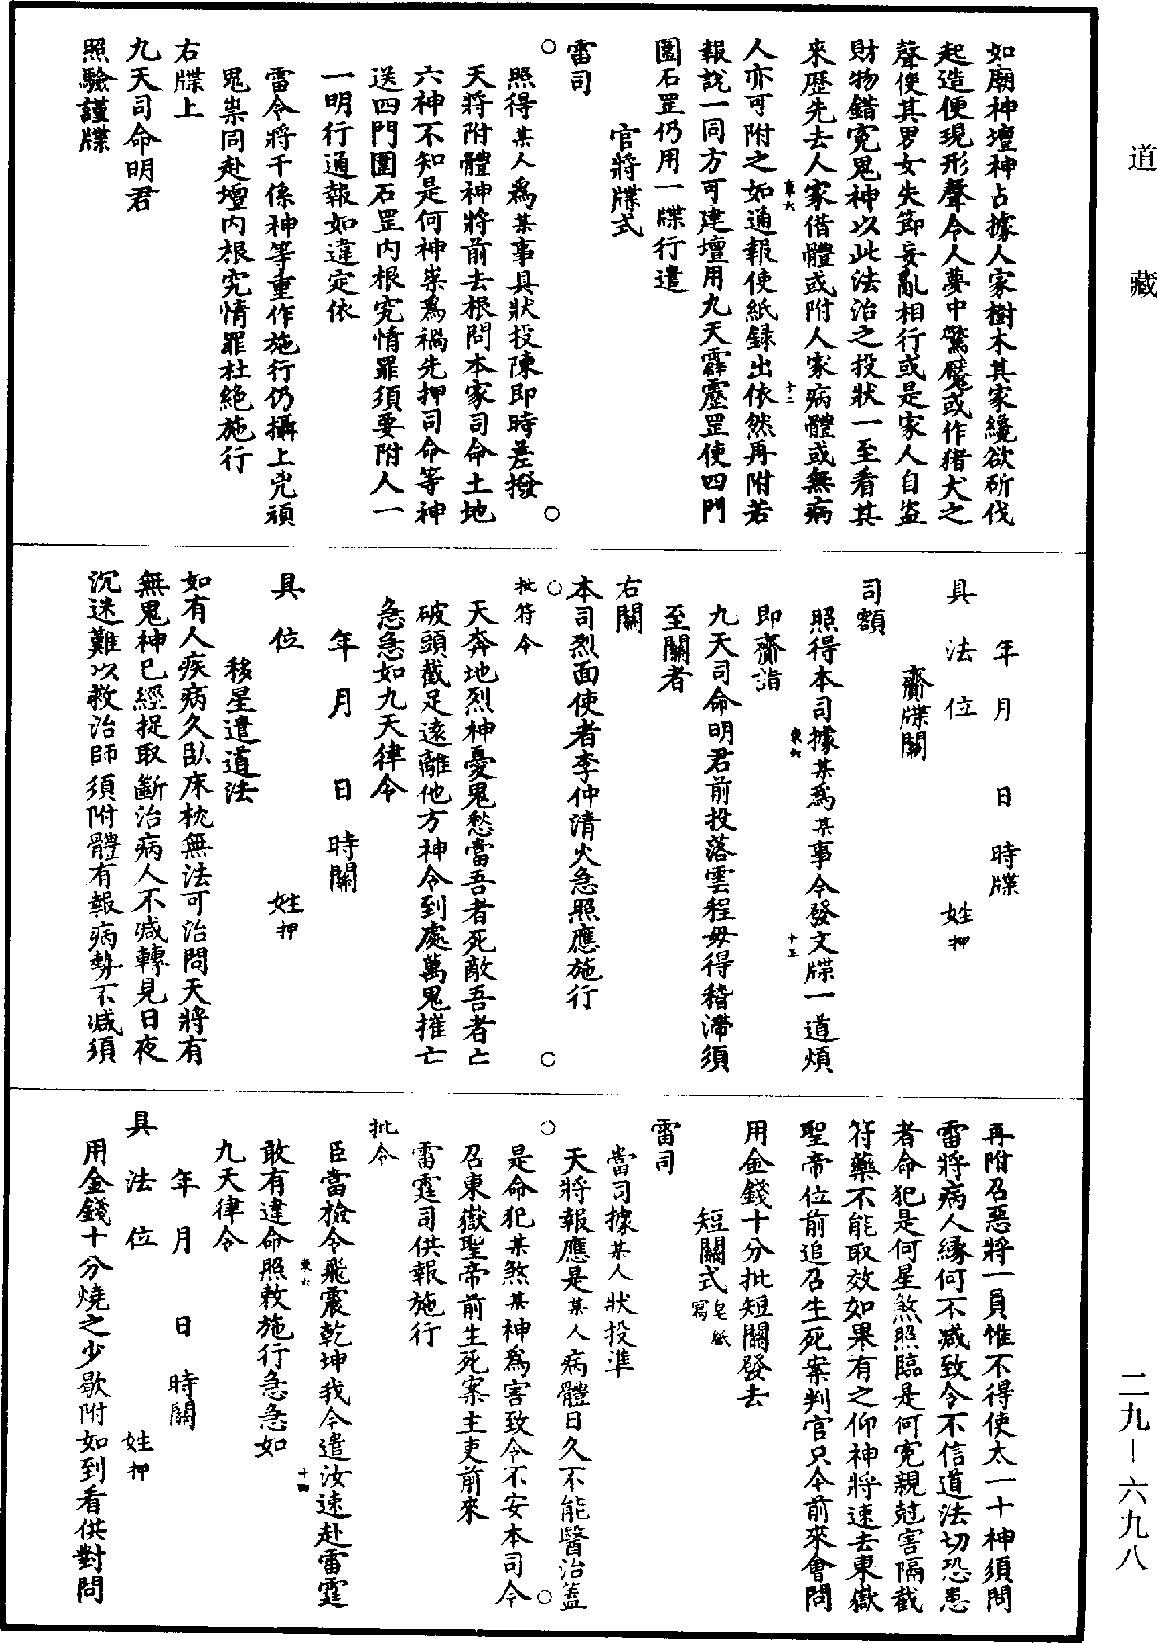 道藏
如廟神壇神占據人家樹木其家纔欲斫伐
起造便現形聲令人夢中驚魘或作猪犬之
聲使其男女失節妄亂相行或是家人自盜
財物錯寃鬼神以此法治之投狀一至看其
來歷先去人家借體或附人家病體或無病
人亦可附之如通報使紙録出依然再附若
報説一同方可建壇用九天霹靂罡使四門
圍石罡仍用一牒行遣
官將牒式
雷司
照得某人爲某事具狀投陳即時差撥
天將附體神將前去根問本家司命土地
六神不知是何神祟爲禍先押司命等神
送四門圍石罡内根究情罪須要附人一
一明行通報如違定依
雷令將干係神等重作施行仍攝上兇頑
鬼祟同赴壇内根究情罪杜絶施行
右牒上
九天司命明君
照驗謹牒
年月日時牒
具法位姓押
齎牒關
司額
照得本司據某爲某事令發文牒一道煩
即齎詣
九天司命明君前投落雲程毋得稽滯須
至關者
右關
本司烈面使者李仲清火急照應施行
批符令
天奔地烈神憂鬼愁當吾者死敵吾者亡
破頭截足遠離他方神令到處萬鬼摧亡
急急如九天律令
年月日時關
具位姓押
移星遣道法
如有人疾病久卧床枕無法可治問天將有
無鬼神已經捉取斷治病人不減轉見日夜
沉迷難以救治師須附體有報病勢不減須
再附召惡將一員惟不得使太一十神須問
雷將病人縁何不減致令不信道法切恐患
者命犯是何星煞照臨是何寃親尅害隔截
符藥不能取效如果有之仰神將速去東嶽
聖帝位前追召生死案判官只今前來會問
用金錢十分批短關發去
短關式皂紙寫
雷司
當司據某人狀投準
天將報應是某人病體日久不能醫治蓋
是命犯某煞某神爲害致令不安本司今
召東嶽聖帝前生死案主吏前來
雷霆司供報施行
批令
臣當檢令飛震乾坤我今遣汝速赴雷霆
敢有違命照敕施行急急如
九天律令
年月日時關
具法位姓押
用金錢十分燒之少歇附如到看供對問
二九—六九八